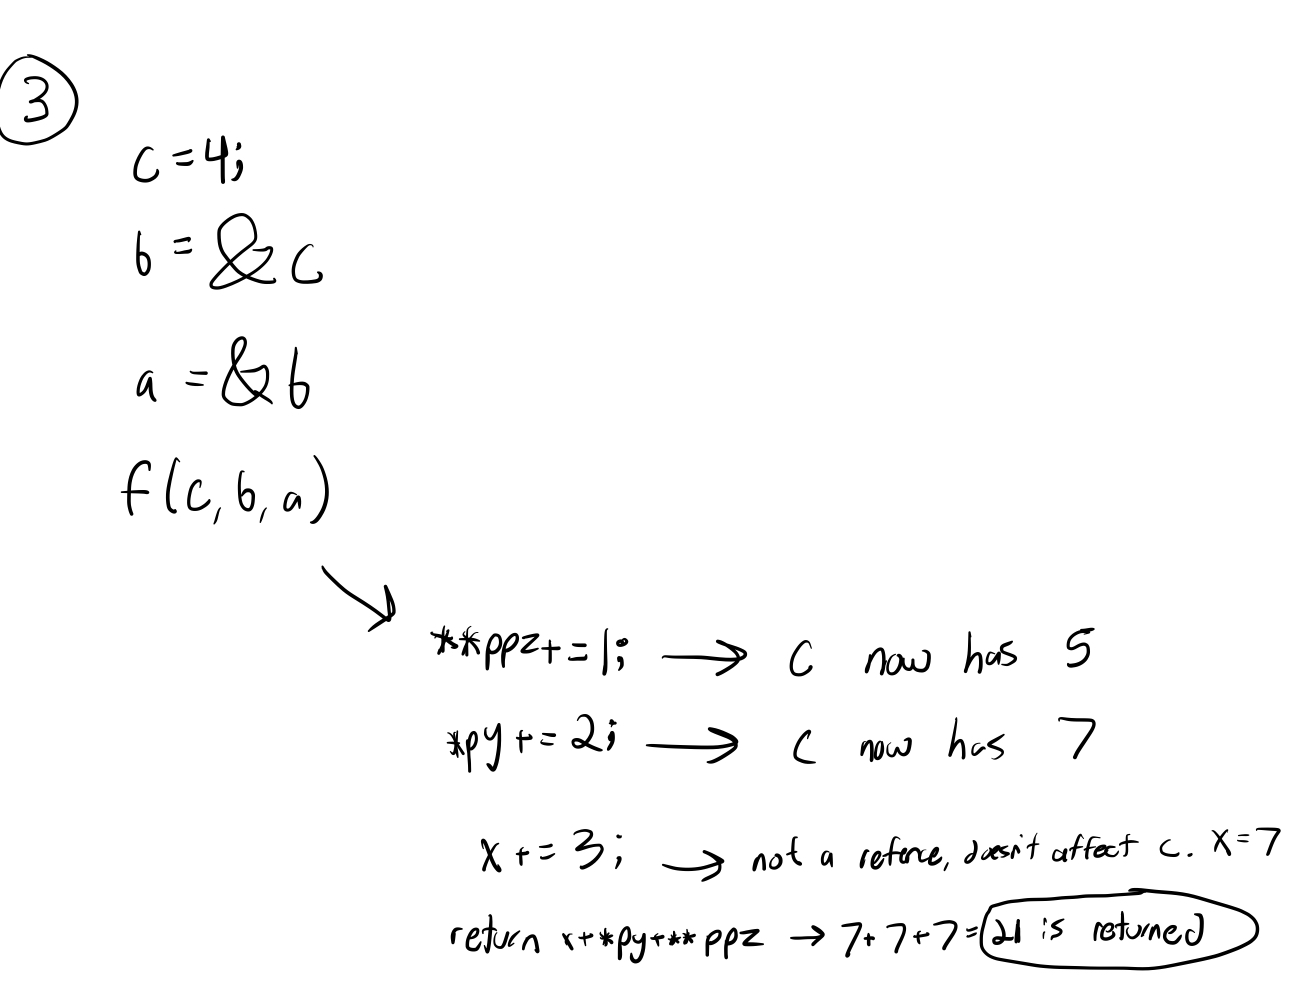 3
c = 4;
b = &c
a = &b
f(c, b, a)
**ppz += 1; → c now has 5
*py += 2; → c now has 7
x += 3; → not a refence, doesn't affect c. x = 7
return x+*py+**ppz → 7+7+7 = 21 is returned